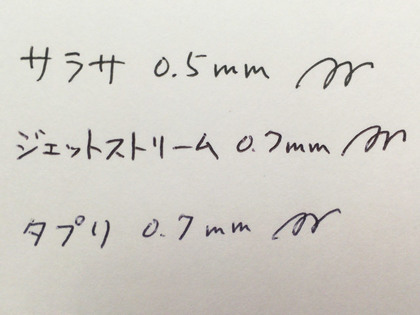 サラサ 0.5mm
ジェットストリーム 0.7mm
タプリ 0.7mm